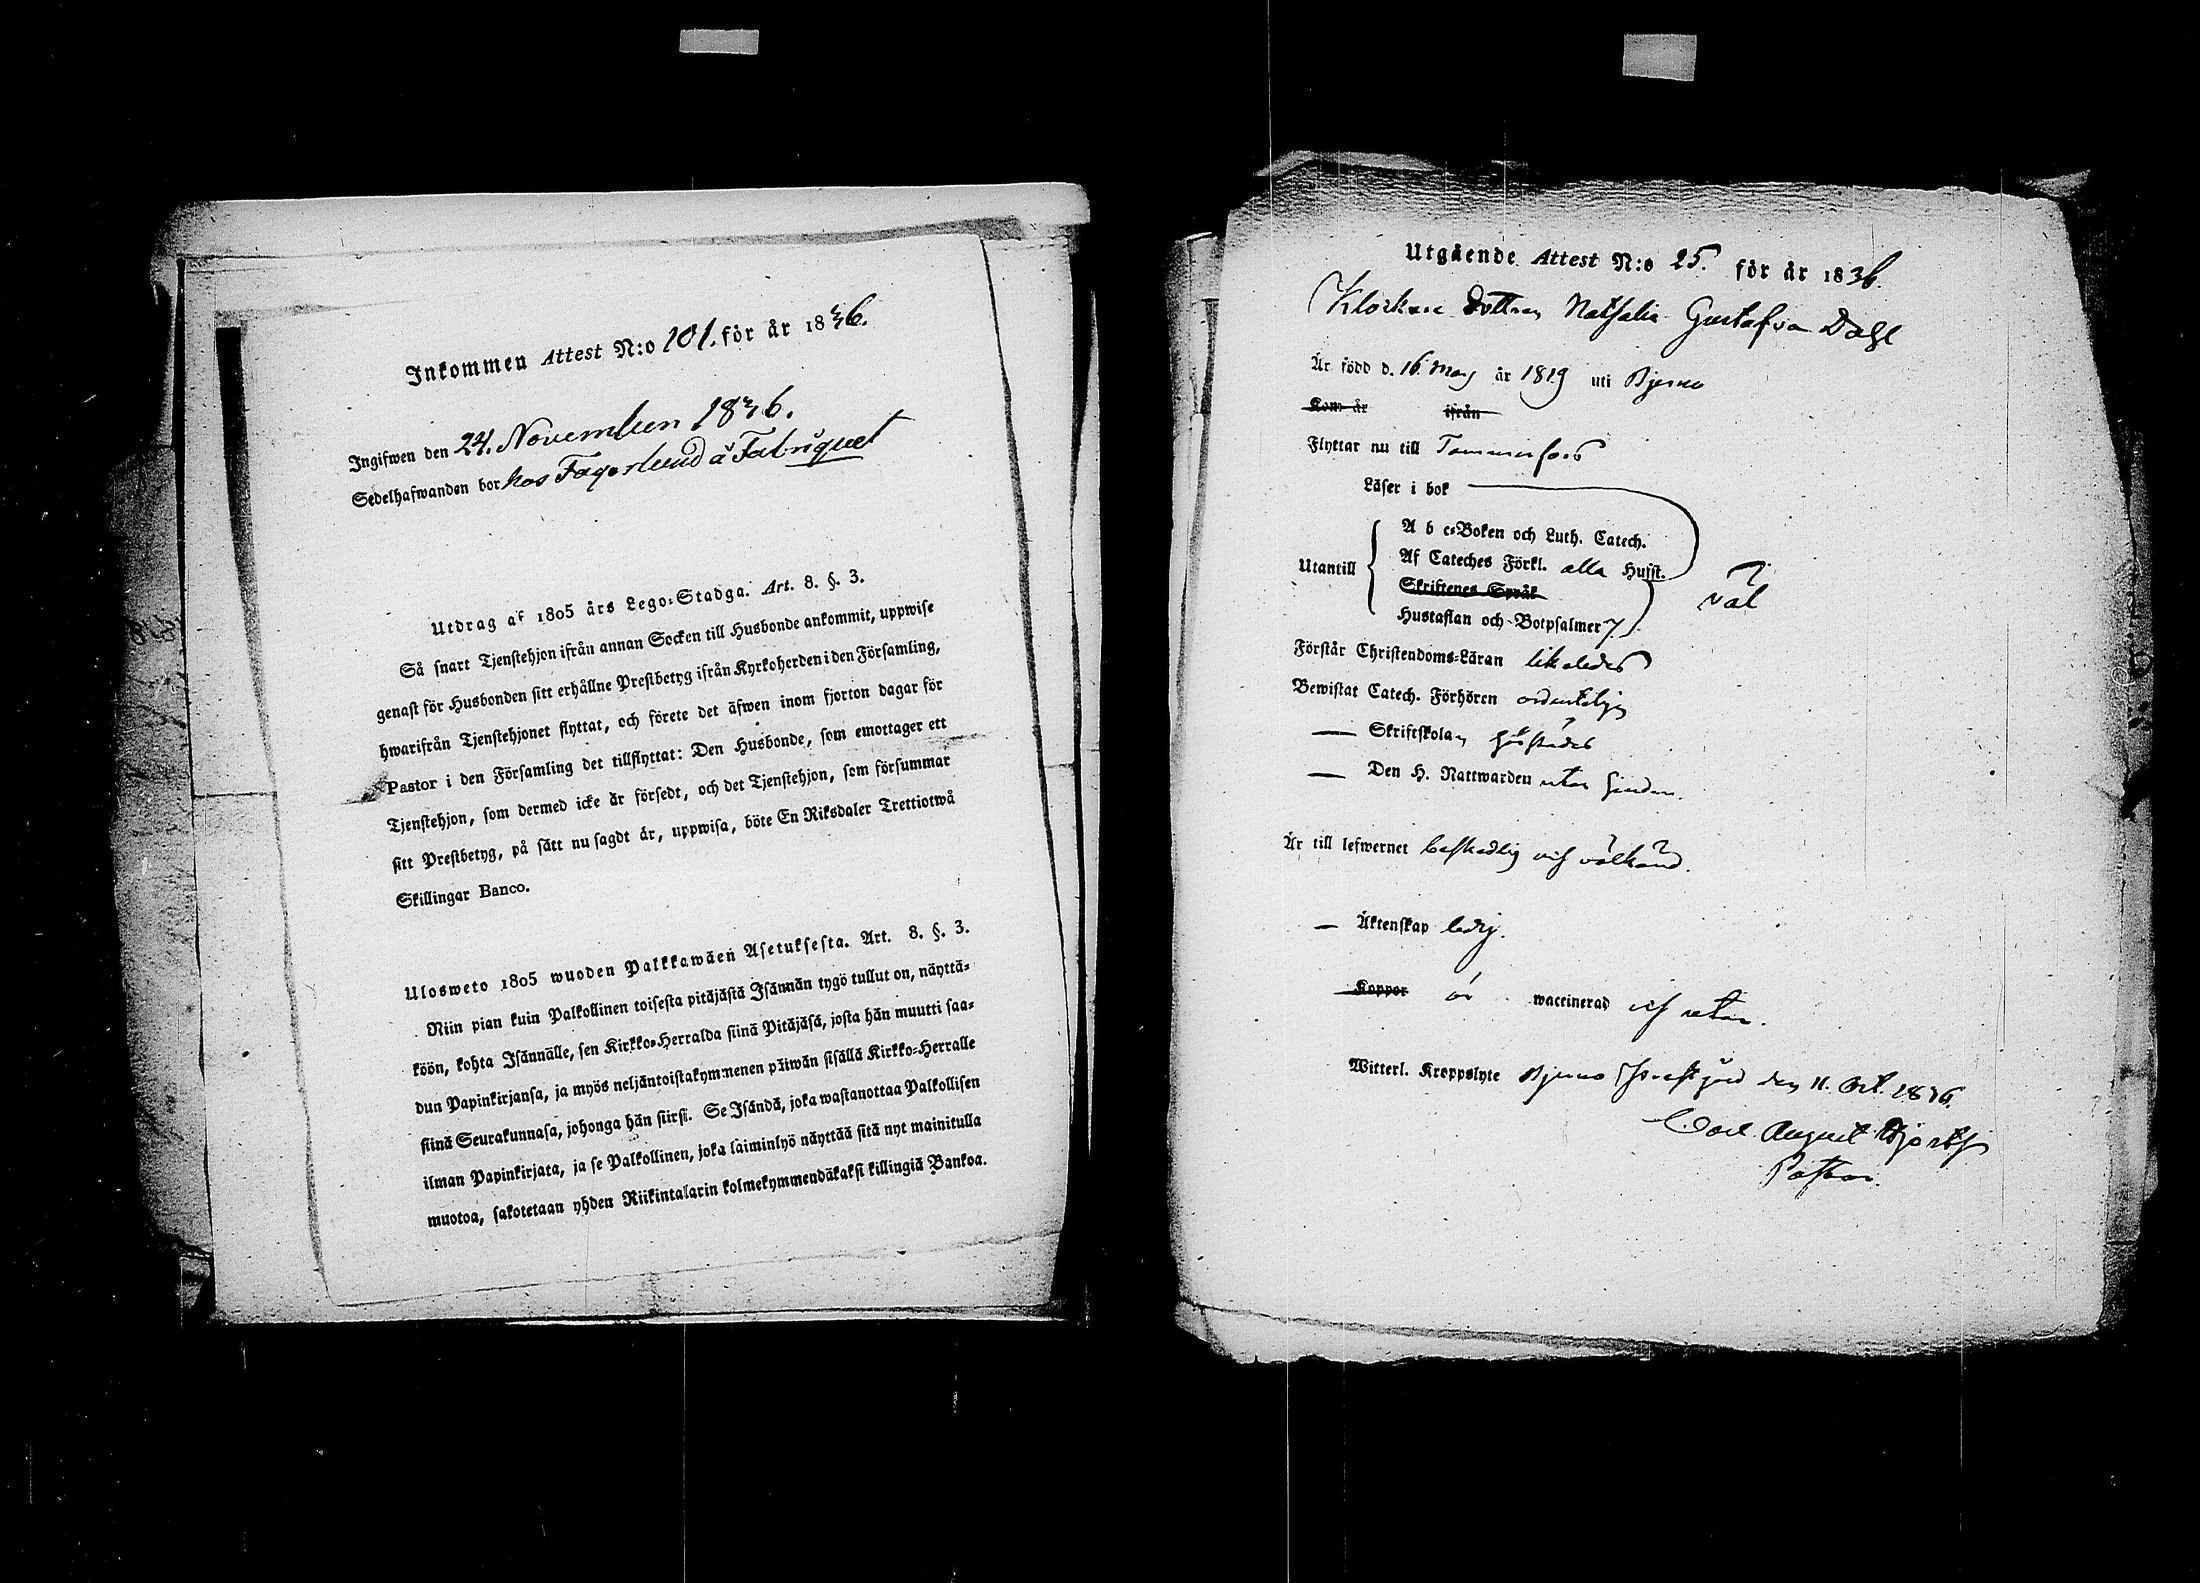 Inkommen Attest N:o 101. för år 1836.
Ingifwen den 24. November 1836.
Sedelhafwanden bor hos Fagerlund å Fabriquet
Utdrag af 1805 års Lego-Stadga. Art. 8. §. 3.
Så snart Tjenstehjon ifrån annan Socken till Husbonde ankommit, uppwise
genast för Husbonden sitt erhållne Prestbetyg ifrån Kyrkoherden i den Församling,
hwarifrån Tjenstehjonet flyttat, och förete det äfwen inom fjorton dagar för
Pastor i den Församling det tillflyttat: Den Husbonde, som emottager ett
Tjenstehjon, som dermed icke är försedt, och det Tjenstehjon, som försummar
sitt Prestbetyg, på sätt nu sagdt är, uppwisa, böte En Riksdaler Trettiotwå
Skillingar Banco.
Ulosweto 1805 wuoden Palkkawäen Asetuksesta. Art. 8. §. 3.
Niin pian kuin Palkollinen toisesta pitäjästä Isännän tygö tullut on, näyttä-
köön, kohta Isännälle, sen Kirkko-Herralda siinä Pitäjäsä, josta hän muutti saa-
dun Papinkirjansa, ja myös neljäntoistakymmenen päiwän sisällä Kirkko-Herralle
siinä Seurakunnasa, johonga hän siirsi. Se Isändä, joka wastanottaa Palkollisen
ilman Papinkirjata, ja se Palkollinen, joka laiminlyö näyttää sitä nyt mainitulla
muotoa, sakotetaan yhden Riikintalarin kolmekymmendäkaksi killingiä Bankoa.
Utgående Attest N:o 25. för år 1836.
Klockare dottren Nathalia Gustafva Dahl
Är född d. 16 Maj år 1819 uti Bjerno
Kom år ifrån
Flyttar nu till Tammerfors
Läser i bok
A b c-Boken och Luth. Catech.
Utantill Af Cateches Förkl. alla Hufst.
Skriftenes Språk
Hustaflan och Botpsalmer 7.
väl
Förstår Christendoms-Läran likaledes
Bewistat Catech. Förhören ordenteligen
— Skriftskolan härstädes
— Den H. Nattwarden utan hinder.
Är till lefwernet beskedlig och välkänd.
— Äktenskap ledig.
Koppor är waccinerad och utan
Witterl. Kroppslyte Bjerno Prestgård den 11. Oct. 1836.
Carl August
Pastor.